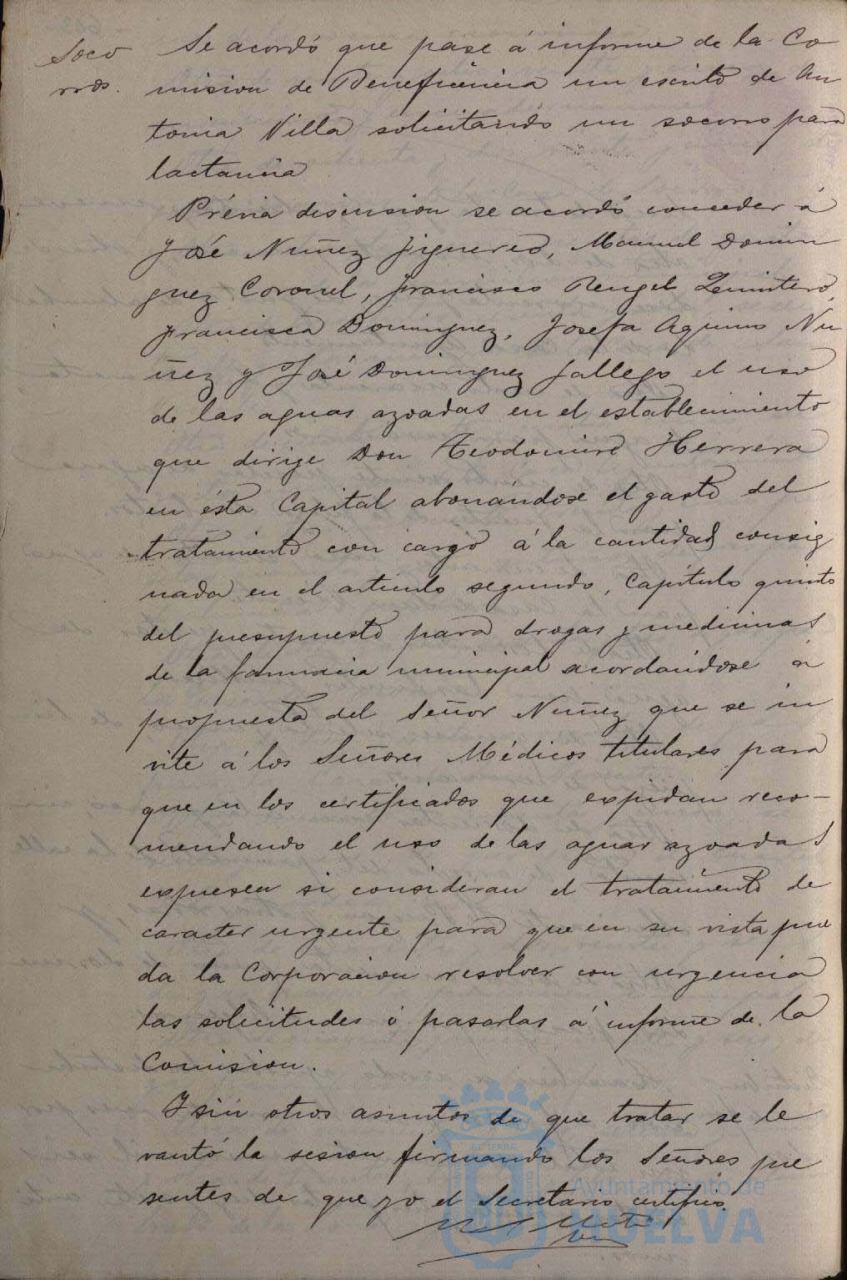 Soco
rros.
Se acordó que pase á informe de la Co
mision de Beneficiencia un escrito de An
tonia Villa solicitando un socorro para
lactancia
Prévia discusion se acordó conceder á
José Nuñez Figuereo, Manuel Domin
guez Coronel, Francisco Rengel Quintero,
Francisca Dominguez, Josefa Aquino Nu
ñez y José Dominguez Gallego el uso
de las aguas azoadas en el establecimiento
que dirige Don Teodomiro Herrera
en ésta Capital abonándose el gasto del
tratamiento con cargo á la cantidad consig
nada en el articulo segundo, Capítulo quinto
del presupuesto para drogas y medicinas
de la farmacia municipal acordándose á
propuesta del Señor Nuñez que se in
vite á los Señores Médicos titulares para
que en los certificados que expidan reco-
mendando el uso de las aguas azoadas
expresen si consideran el tratamiento de
caracter urgente para que en su vista pue
da la Corporacion resolver con urgencia
las solicitudes ó pasarlas á informe de la
Comision.
Y sin otros asuntos de que tratar se le
vantó la sesion firmando los Señores pre
sentes de que yo el Secretario certifico.
Ayuntamiento de
HUELVA